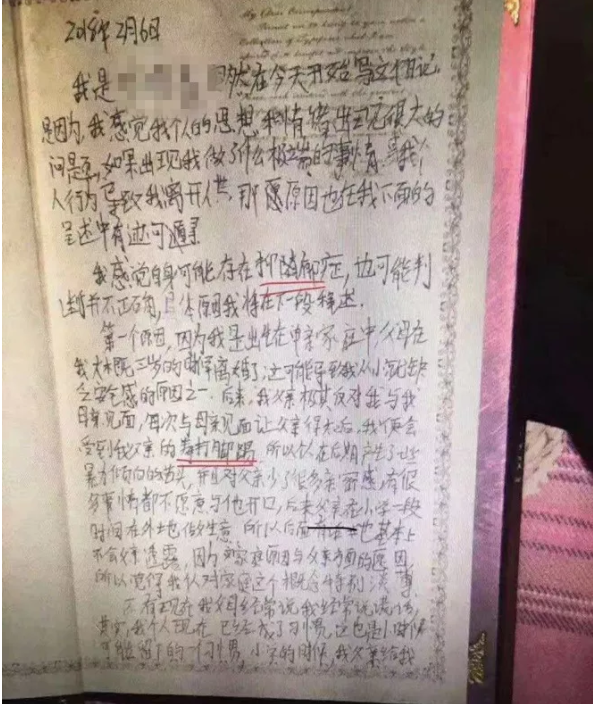 My Dear Correspondent
2018年2月6日
我是 既然在今天开始写这个日记
是因为我感觉我个人的思想和情绪出现很大的
问题,如果出现我做了什么极端的事情或我个
人行为导致我离开人世,那愿原因也在我下面的
呈述中有迹可寻
我感觉自身可能存在抑郁症,也可能判
断并不正确,具体原因我将在下一段描述.
第一个原因,因为我是出生在单亲家庭中,父母在
我大概三岁的时候离婚了,这可能导致我从小就缺
乏安全感的原因之一.后来,我父亲极其反对我与我
母亲见面,每次与母亲见面让父亲得知后,我便会
受到我父亲的毒打脚踢 所以从在后期产生了些
暴力倾向的苗头,并且对父亲少了很多亲密感,有很
多事情都不愿意与他开口,后来父亲在小学一段
时间在外地做生意 所以后面 也基本上
不会 透露,因为家庭原因与父亲方面的原因,
所以觉得我从对家庭这个概念特别淡薄
不有现在我父母经常说我经常说谎话,
其实,我个人现在 已经成了习惯 这也是小时候
可能留下的一个习惯 小 的时候,我父亲给我